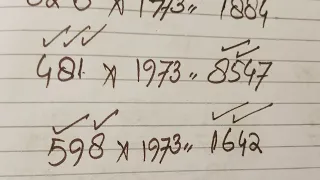 1973 = 1884
481 × 1973 = 8547
598 × 1973 = 1642